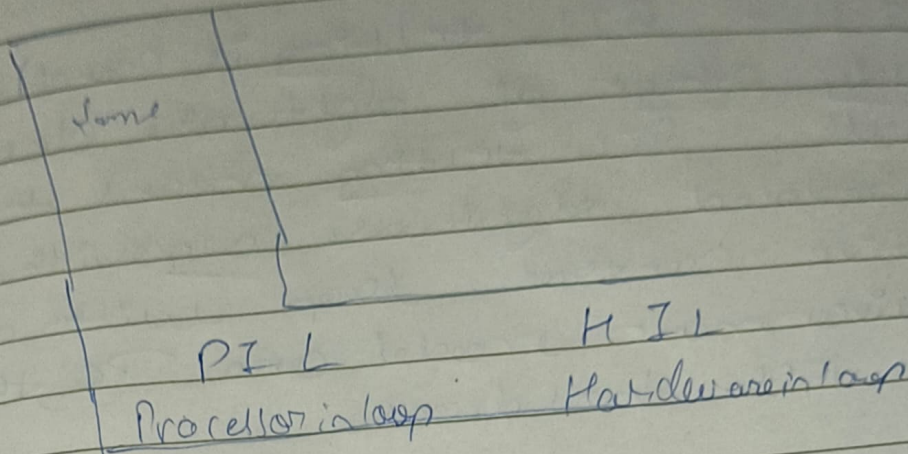 Same
PIL HIL
Processor in loop Hardware in loop